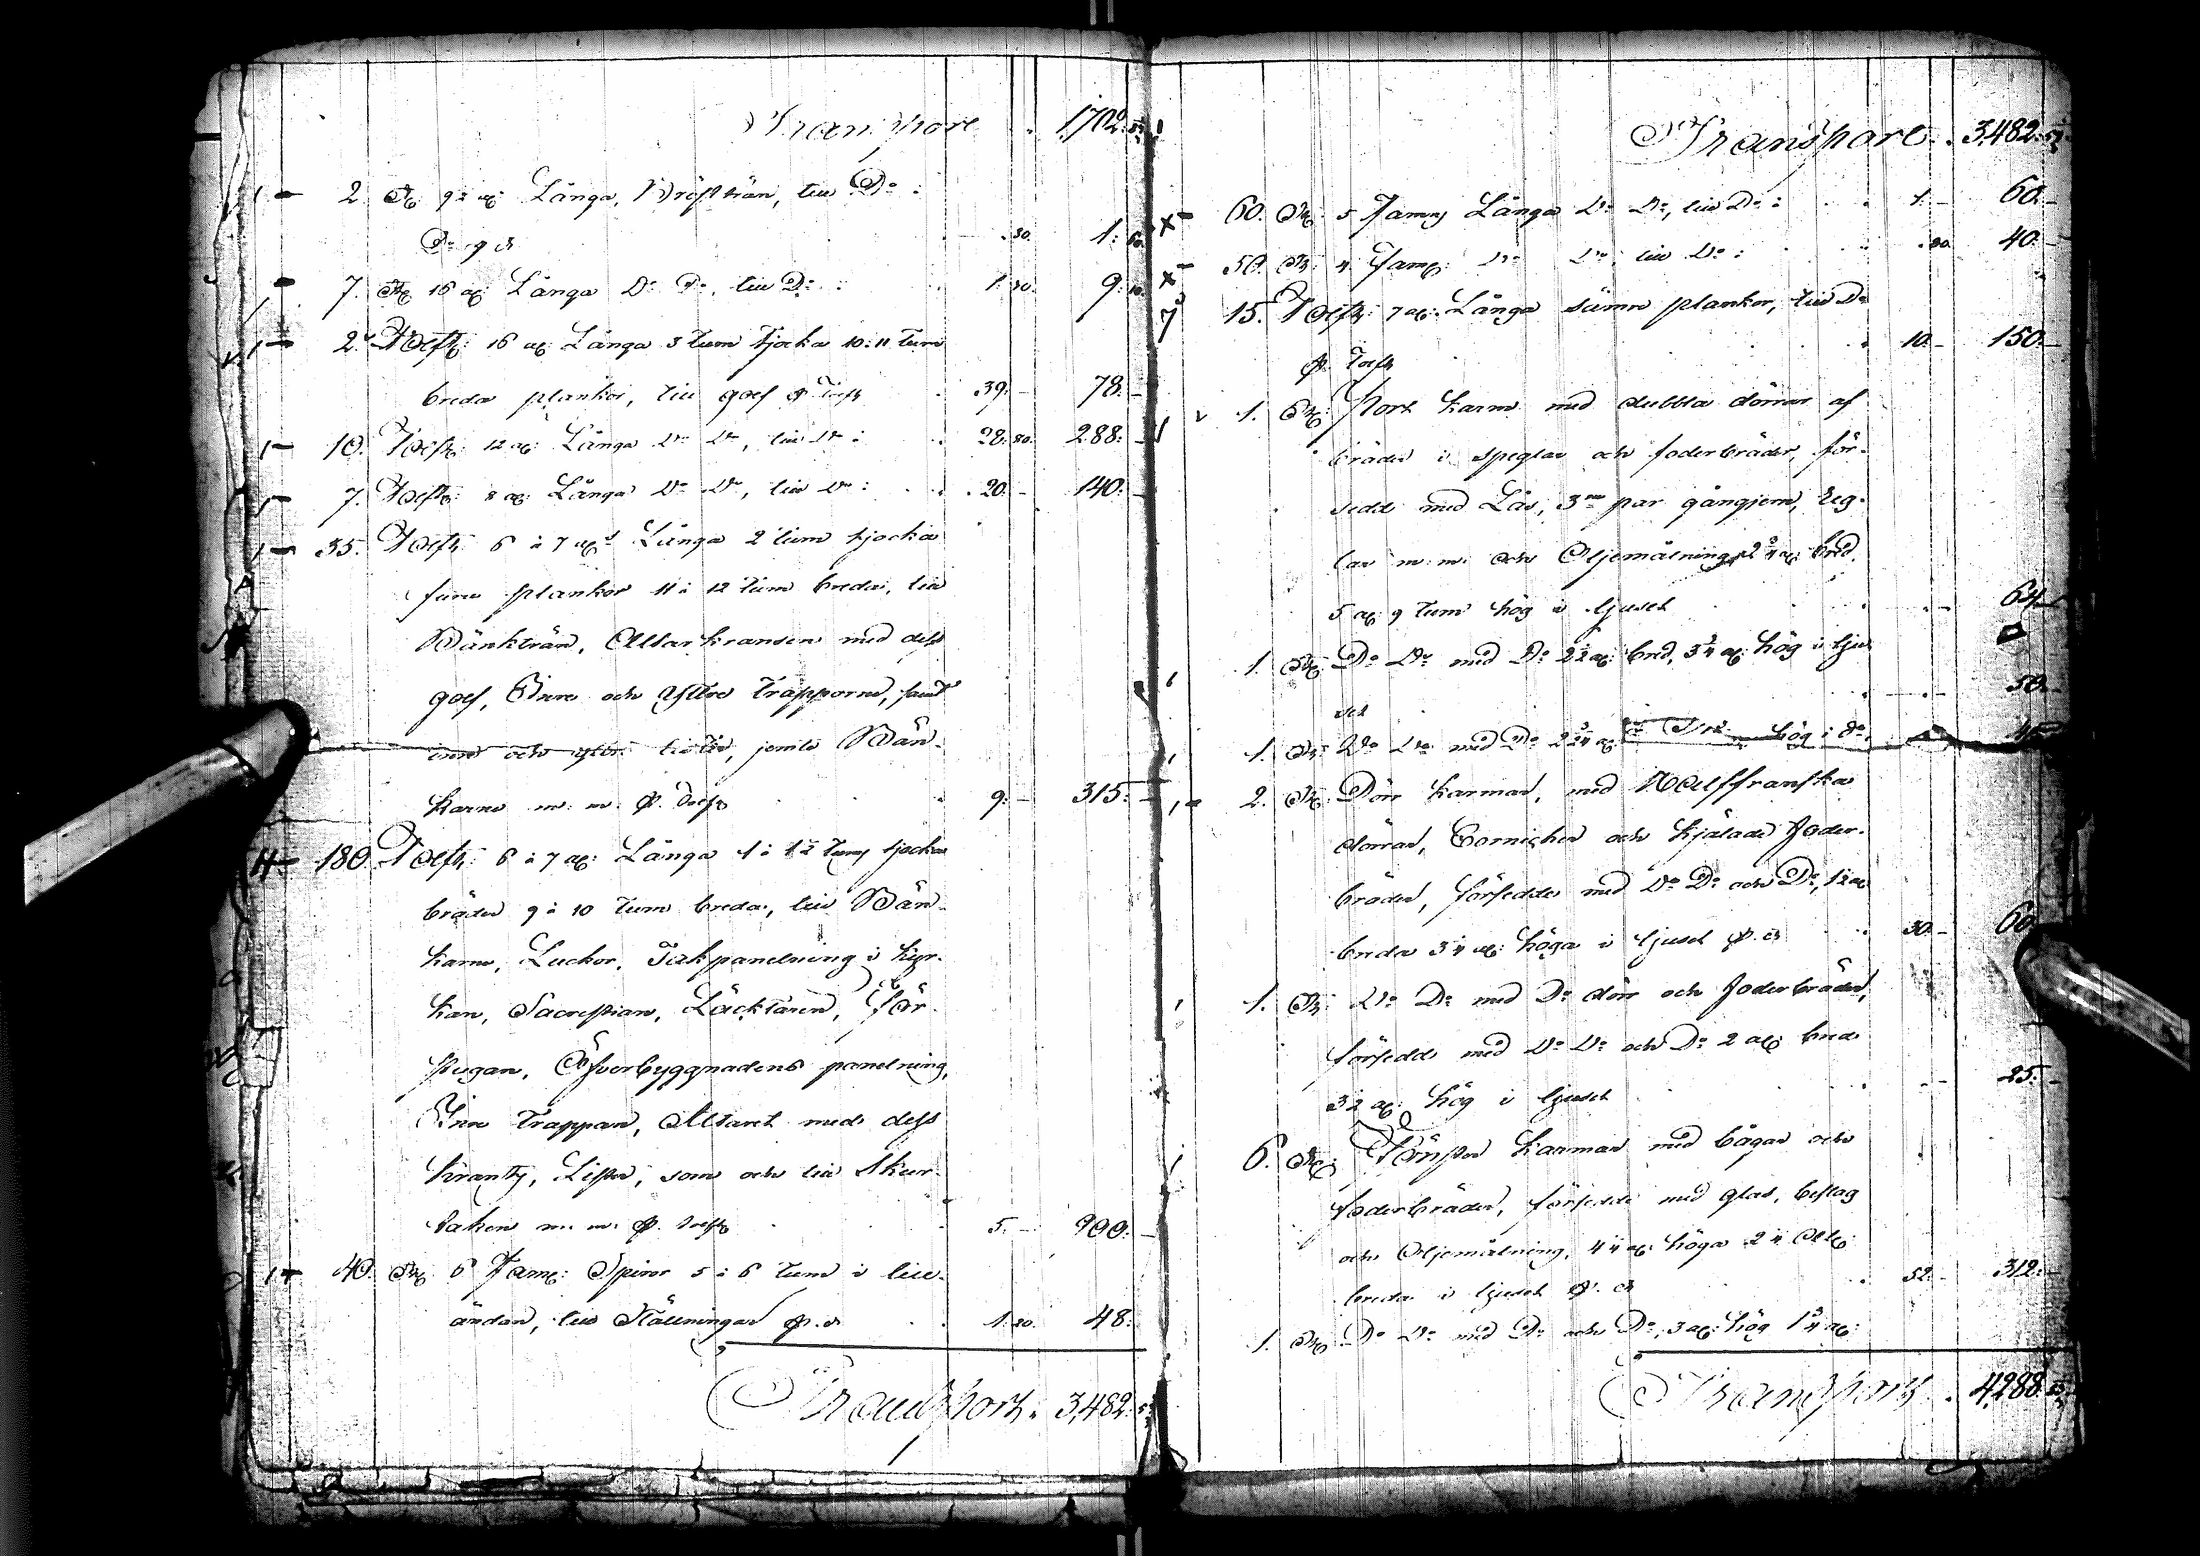 Transport . 1,702:
1 — 2. St: 9½ al: Långa, Bröstträn, till Do :
Do 9 st . 30. 1:
— 7. St: 16 al: Långa Do Do, till Do : 1: 30. 9: 10.
1 — 2. Tolft: 16 al: Långa 3 tum tjocka 10: 11 tum
breda plankor, till golf P. Tolft . 39: — 78: —
1 — 10. Tolft: 12 al: Långa Do Do, till Do : . 28: 80. 288: —
7. Tolft: 8 al: Långa Do Do, till Do : . 20: — 140: —
1 — 35. Tolft: 6 à 7 al: Långa 2 tum tjocka
furu plankor 11 à 12 tum breda, till
Bänkträn, Altar kransen med dess
golf, Inre och yttre trapporne, samt
inre och yttre jemte Bän-
karne m: m: P. Tolft . 9: — 315: —
180. Tolft: 6 à 7 al: Långa 1 à 1½ tums tjocka
bräder 9 à 10 tum breda, till Bän-
karne, Luckor, Takpanelning i Kyr-
kan, Sacrestian, Läcktaren, För-
stugan, Öfverbyggnadens panelning,
Inre Trappan, Altaret med dess
krants, Lister, som och till Skur-
taken m: m: P. Tolft . 5: — 900: —
40. St: 6 Famn: Spiror 5 à 6 tum i lill-
ändan, till Ställningar P. st . 1: 20. 48:
Transport . 3,482:
Transport . 3,482:
x — 60. St: 5 Famns Långa Do Do, till Do : . 1: — 60: —
x — 50. St: 4 Famns Do Do till Do : . 80. 40: —
7 15. Tolft: 7 al: Långa sämre plankor, till Do
P. Tolft . 10: — 150: —
1. St: Port karm med dubbla dörrar af
bräder i speglar och foderbräder, för-
sedd med Lås, 3ne par gångjern, Reg-
lar m: m: och Oljemålning, 2¾ al: bred,
5 al: 9 tum hög i ljuset . 64: —
1. St: Do Do med Do 2½ al: bred, 3¾ al: hög i ljus
set . 50: —
1. St: Do Do med Do 2¾ al: hög i do,
1 — 2. St: Dörr karmar, med Halffranska
dörrar, Cornicher och kjälade Foder-
bräder, försedde med Do Do och Do, 1½ al:
breda 3¼ al: höga i ljuset P. st . 30: — 60:
1. St: Do Do med Do dörr och Foderbräder,
försedd med Do Do och Do 2 al: bred
3½ al: hög i ljuset . 25: —
6. St: Fönster Karmar med bågar och
foderbräder, försedde med glas, beslag
och Oljemålning, 4¼ al: höga 2¼ Al:
breda i ljuset P. st . 52: — 312: —
1. St: Do Do med Do och Do, 3 al: hög 1¾ al:
Transport . 4,288: